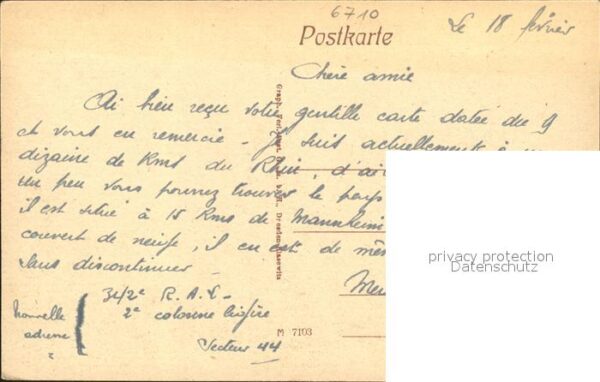 6710
Postkarte
Le 18 février
Chère amie
Ai bien reçu votre gentille carte datée du 9
et vous en remercie - Je suis actuellement à
dizaine de Kms du Rhin, d'ai
un peu vous pourrez trouver le pays
il est situé à 15 Kms de Mannheim
couvert de neige, il en est de mê
sans discontinuer
31/2e R.A.L.
2e colonne légère
Secteur 44
Nouvelle
adresse
M 7103
privacy protection
Datenschutz